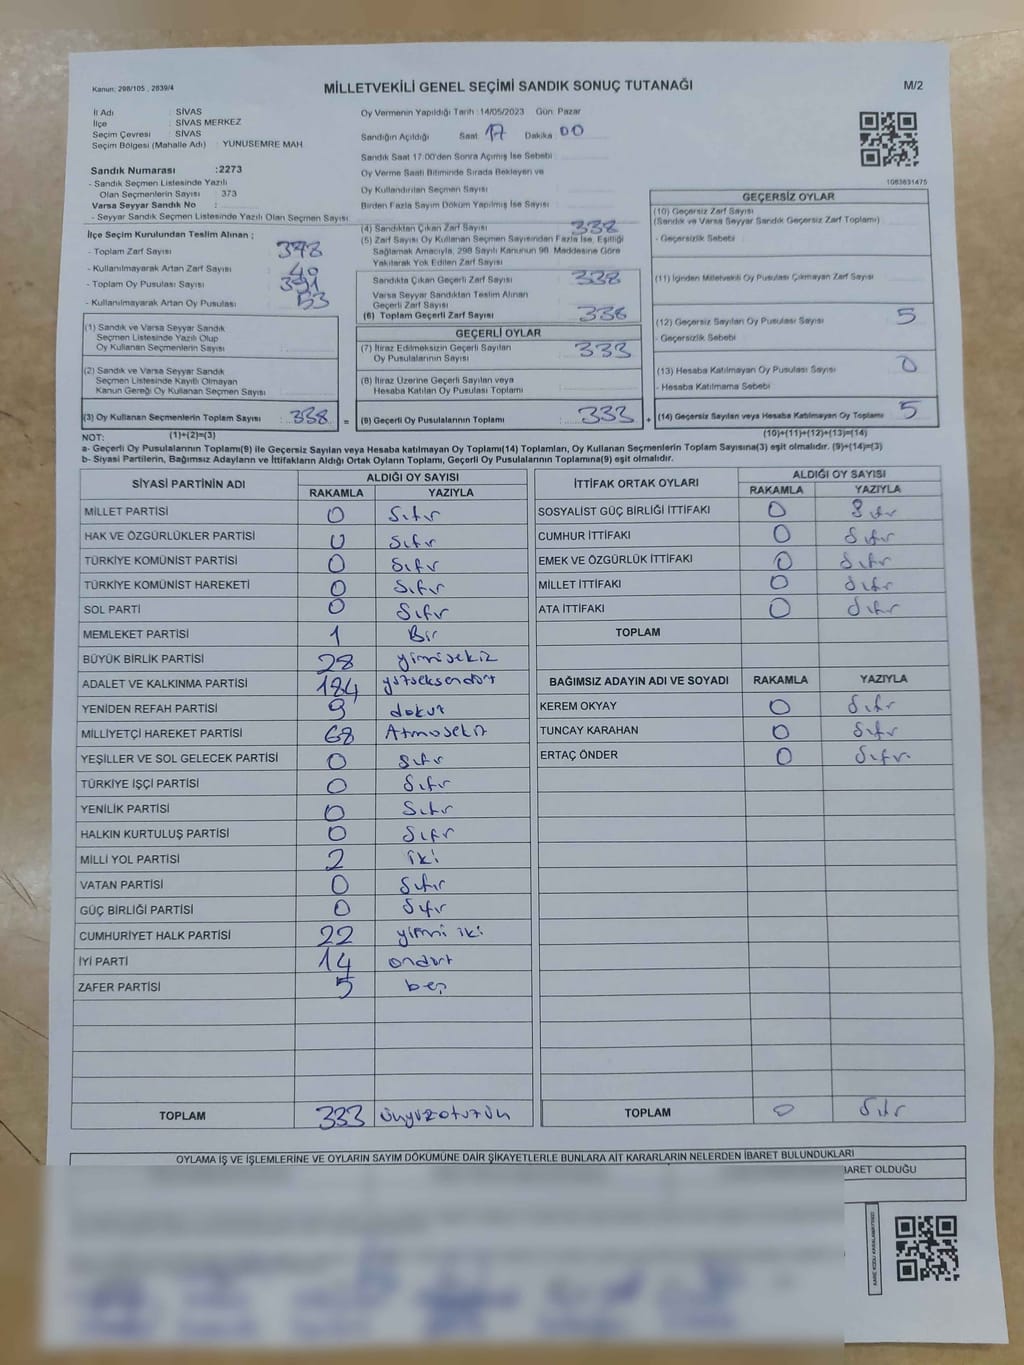 Kanun: 298/105 , 2839/4
MİLLETVEKİLİ GENEL SEÇİMİ SANDIK SONUÇ TUTANAĞI
M/2
İl Adı : SİVAS
İlçe : SİVAS MERKEZ
Seçim Çevresi : SİVAS
Seçim Bölgesi (Mahalle Adı) : YUNUSEMRE MAH.
Sandık Numarası :2273
- Sandık Seçmen Listesinde Yazılı
Olan Seçmenlerin Sayısı : 373
Varsa Seyyar Sandık No :
- Seyyar Sandık Seçmen Listesinde Yazılı Olan Seçmen Sayısı
Oy Vermenin Yapıldığı Tarih : 14/05/2023 Gün: Pazar
Sandığın Açıldığı Saat: 17 Dakika: 00
Sandık Saat 17.00'den Sonra Açımış İse Sebebi :
Oy Verme Saati Bitiminde Sırada Bekleyen ve
Oy Kullandırılan Seçmen Sayısı :
Birden Fazla Sayım Döküm Yapılmış İse Sayısı :
1083631475
İlçe Seçim Kurulundan Teslim Alınan ;
- Toplam Zarf Sayısı : 378
- Kullanılmayarak Artan Zarf Sayısı : 40
- Toplam Oy Pusulası Sayısı : 391
- Kullanılmayarak Artan Oy Pusulası : 53
(1) Sandık ve Varsa Seyyar Sandık
Seçmen Listesinde Yazılı Olup
Oy Kullanan Seçmenlerin Sayısı
(2) Sandık ve Varsa Seyyar Sandık
Seçmen Listesinde Kayıtlı Olmayan
Kanun Gereği Oy Kullanan Seçmen Sayısı
(3) Oy Kullanan Seçmenlerin Toplam Sayısı : 338 =
(4) Sandıktan Çıkan Zarf Sayısı : 338
(5) Zarf Sayısı Oy Kullanan Seçmen Sayısından Fazla İse, Eşitliği
Sağlamak Amacıyla, 298 Sayılı Kanunun 98. Maddesine Göre
Yakılarak Yok Edilen Zarf Sayısı :
Sandıkta Çıkan Geçerli Zarf Sayısı : 338
Varsa Seyyar Sandıktan Teslim Alınan
Geçerli Zarf Sayısı
(6) Toplam Geçerli Zarf Sayısı : 338
GEÇERLİ OYLAR
(7) İtiraz Edilmeksizin Geçerli Sayılan
Oy Pusulalarının Sayısı : 333
(8) İtiraz Üzerine Geçerli Sayılan veya
Hesaba Katılan Oy Pusulası Toplamı
(9) Geçerli Oy Pusulalarının Toplamı : 333 +
GEÇERSİZ OYLAR
(10) Geçersiz Zarf Sayısı
(Sandık ve Varsa Seyyar Sandık Geçersiz Zarf Toplamı)
- Geçersizlik Sebebi
(11) İçinden Milletvekili Oy Pusulası Çıkmayan Zarf Sayısı
(12) Geçersiz Sayılan Oy Pusulası Sayısı : 5
- Geçersizlik Sebebi
(13) Hesaba Katılmayan Oy Pusulası Sayısı : 0
- Hesaba Katılmama Sebebi
(14) Geçersiz Sayılan veya Hesaba Katılmayan Oy Toplamı : 5
NOT: (1)+(2)=(3)
(10)+(11)+(12)+(13)=(14)
a- Geçerli Oy Pusulalarının Toplamı(9) ile Geçersiz Sayılan veya Hesaba katılmayan Oy Toplamı(14) Toplamları, Oy Kullanan Seçmenlerin Toplam Sayısına(3) eşit olmalıdır. (9)+(14)=(3)
b- Siyasi Partilerin, Bağımsız Adayların ve İttifakların Aldığı Ortak Oyların Toplamı, Geçerli Oy Pusulalarının Toplamına(9) eşit olmalıdır.
SİYASİ PARTİNİN ADI ALDIĞI OY SAYISI
RAKAMLA YAZIYLA
MİLLET PARTİSİ 0 Sıfır
HAK VE ÖZGÜRLÜKLER PARTİSİ 0 Sıfır
TÜRKİYE KOMÜNİST PARTİSİ 0 Sıfır
TÜRKİYE KOMÜNİST HAREKETİ 0 Sıfır
SOL PARTİ 0 Sıfır
MEMLEKET PARTİSİ 1 Bir
BÜYÜK BİRLİK PARTİSİ 28 yirmisekiz
ADALET VE KALKINMA PARTİSİ 184 yüzseksendört
YENİDEN REFAH PARTİSİ 9 dokuz
MİLLİYETÇİ HAREKET PARTİSİ 68 Atmışsekiz
YEŞİLLER VE SOL GELECEK PARTİSİ 0 Sıfır
TÜRKİYE İŞÇİ PARTİSİ 0 Sıfır
YENİLİK PARTİSİ 0 Sıfır
HALKIN KURTULUŞ PARTİSİ 0 Sıfır
MİLLİ YOL PARTİSİ 2 iki
VATAN PARTİSİ 0 Sıfır
GÜÇ BİRLİĞİ PARTİSİ 0 Sıfır
CUMHURİYET HALK PARTİSİ 22 yirmi iki
İYİ PARTİ 14 ondört
ZAFER PARTİSİ 5 beş
TOPLAM 333 üçyüzotuzüç
İTTİFAK ORTAK OYLARI ALDIĞI OY SAYISI
RAKAMLA YAZIYLA
SOSYALİST GÜÇ BİRLİĞİ İTTİFAKI 0 Sıfır
CUMHUR İTTİFAKI 0 Sıfır
EMEK VE ÖZGÜRLÜK İTTİFAKI 0 Sıfır
MİLLET İTTİFAKI 0 Sıfır
ATA İTTİFAKI 0 Sıfır
TOPLAM
BAĞIMSIZ ADAYIN ADI VE SOYADI RAKAMLA YAZIYLA
KEREM OKYAY 0 Sıfır
TUNCAY KARAHAN 0 Sıfır
ERTAÇ ÖNDER 0 Sıfır
TOPLAM 0 Sıfır
OYLAMA İŞ VE İŞLEMLERİNE VE OYLARIN SAYIM DÖKÜMÜNE DAİR ŞİKAYETLERLE BUNLARA AİT KARARLARIN NELERDEN İBARET BULUNDUKLARI
İBARET OLDUĞU